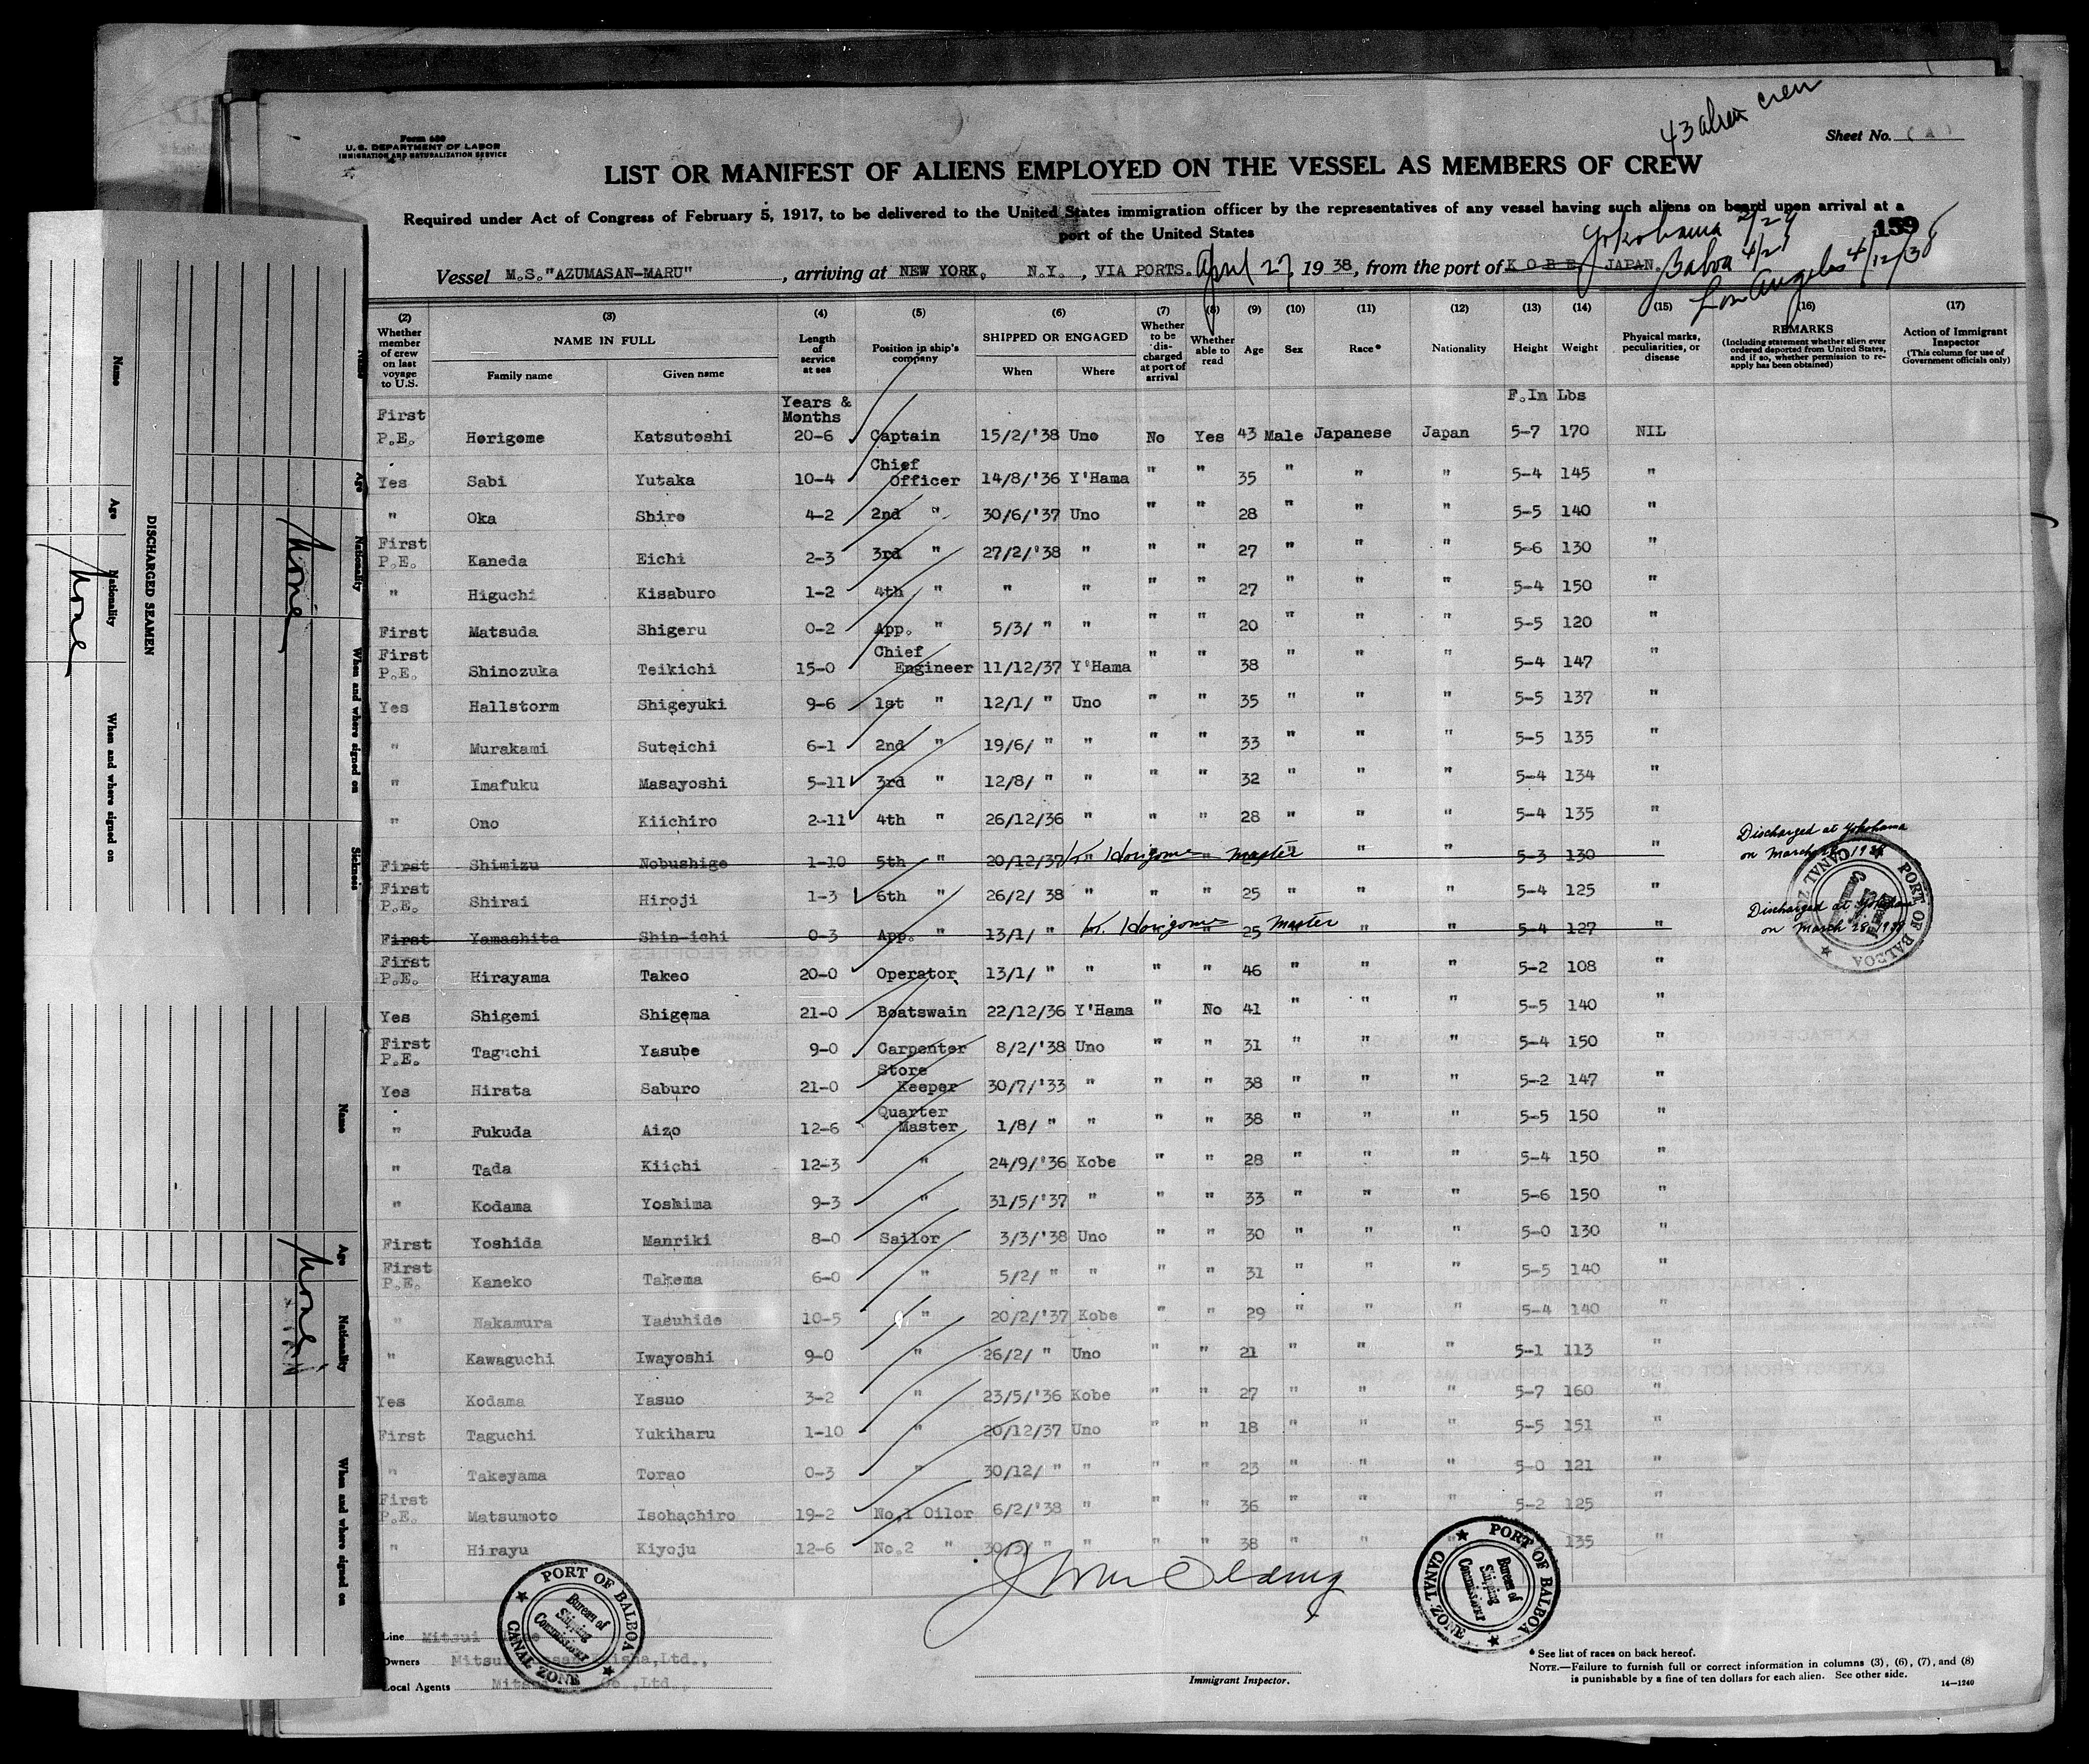 43 alien crew
Form 680
U. S. DEPARTMENT OF LABOR
IMMIGRATION AND NATURALIZATION SERVICE
Sheet No. (1)
LIST OR MANIFEST OF ALIENS EMPLOYED ON THE VESSEL AS MEMBERS OF CREW
Required under Act of Congress of February 5, 1917, to be delivered to the United States immigration officer by the representatives of any vessel having such aliens on board upon arrival at a
port of the United States
159
Yokohama 3/29
Balboa 4/21
Los Angeles 4/12/38
Vessel M.S."AZUMASAN-MARU", arriving at NEW YORK, N.Y., VIA PORTS. April 27, 1938, from the port of KOBE, JAPAN.
(2) (3) (4) (5) (6) (7) (8) (9) (10) (11) (12) (13) (14) (15) (16) (17)
Whether member of crew on last voyage to U.S. NAME IN FULL Family name Given name Length of service at sea Position in ship's company SHIPPED OR ENGAGED When Where Whether to be discharged at port of arrival Whether able to read Age Sex Race* Nationality Height Weight Physical marks, peculiarities, or disease REMARKS (Including statement whether alien ever ordered deported from United States, and if so, whether permission to re-apply has been obtained) Action of Immigrant Inspector (This column for use of Government officials only)
Years & Months F.In Lbs
First P.E. Horigome Katsutoshi 20-6 Captain 15/2/'38 Uno No Yes 43 Male Japanese Japan 5-7 170 NIL
Yes Sabi Yutaka 10-4 Chief Officer 14/8/'36 Y'Hama " " 35 " " " 5-4 145 "
" Oka Shiro 4-2 2nd " 30/6/'37 Uno " " 28 " " " 5-5 140 "
First P.E. Kaneda Eichi 2-3 3rd " 27/2/'38 " " " 27 " " " 5-6 130 "
" Higuchi Kisaburo 1-2 4th " " " " " 27 " " " 5-4 150 "
First Matsuda Shigeru 0-2 App. " 5/3/ " " " " 20 " " " 5-5 120 "
First P.E. Shinozuka Teikichi 15-0 Chief Engineer 11/12/37 Y'Hama " " 38 " " " 5-4 147 "
Yes Hallstorm Shigeyuki 9-6 1st " 12/1/ " Uno " " 35 " " " 5-5 137 "
" Murakami Suteichi 6-1 2nd " 19/6/ " " " " 33 " " " 5-5 135 "
" Imafuku Masayoshi 5-11 3rd " 12/8/ " " " " 32 " " " 5-4 134 "
" Ono Kiichiro 2-11 4th " 26/12/36 " " " 28 " " " 5-4 135 "
First Shimizu Nobushige 1-10 5th " 20/12/37 K. Horigome Master " " 5-3 130 Discharged at Yokohama on March
First P.E. Shirai Hiroji 1-3 6th " 26/2/ 38 " " " 25 " " " 5-4 125 "
First Yamashita Shin-ichi 0-3 App. " 13/1/ " K. Horigome 25 Master " " 5-4 127 " Discharged at Yokohama on March 28 1938
First P.E. Hirayama Takeo 20-0 Operator 13/1/ " " " " 46 " " " 5-2 108 "
Yes Shigemi Shigema 21-0 Boatswain 22/12/36 Y'Hama " No 41 " " " 5-5 140 "
First P.E. Taguchi Yasube 9-0 Carpenter 8/2/'38 Uno " " 31 " " " 5-4 150 "
Yes Hirata Saburo 21-0 Store Keeper 30/7/'33 " " " 38 " " " 5-2 147 "
" Fukuda Aizo 12-6 Quarter Master 1/8/ " " " " 38 " " " 5-5 150 "
" Tada Kiichi 12-3 " 24/9/'36 Kobe " " 28 " " " 5-4 150 "
" Kodama Yoshima 9-3 " 31/5/'37 " " " 33 " " " 5-6 150 "
First Yoshida Manriki 8-0 Sailor 3/3/'38 Uno " " 30 " " " 5-0 130 "
First P.E. Kaneko Takema 6-0 " 5/2/ " " " " 31 " " " 5-5 140 "
" Nakamura Yasuhide 10-5 " 20/2/'37 Kobe " " 29 " " " 5-4 140 "
" Kawaguchi Iwayoshi 9-0 " 26/2/ " Uno " " 21 " " " 5-1 113 "
Yes Kodama Yasuo 3-2 " 23/5/'36 Kobe " " 27 " " " 5-7 160 "
First Taguchi Yukiharu 1-10 " 20/12/37 Uno " " 18 " " " 5-5 151 "
" Takeyama Torao 0-3 " 30/12/ " " " " 23 " " " 5-0 121 "
First P.E. Matsumoto Isohachiro 19-2 No.1 Oilor 6/2/'38 " " " 36 " " " 5-2 125 "
" Hirayu Kiyoju 12-6 No.2 " " " " " 38 " " " 135 "
PORT OF BALBOA CANAL ZONE Bureau of Shipping Commissioner
PORT OF BALBOA CANAL ZONE Bureau of Shipping Commissioner
PORT OF BALBOA CANAL ZONE
Line Mitsui
Owners Kaisha,Ltd.,
Local Agents Co.,Ltd.,
Immigrant Inspector.
* See list of races on back hereof.
NOTE.—Failure to furnish full or correct information in columns (3), (6), (7), and (8)
is punishable by a fine of ten dollars for each alien. See other side.
14—1240
DISCHARGED SEAMEN
Name Age Nationality When and where signed on
None
Name Age Nationality When and where signed on Sickness
None
Name Age Nationality When and where signed on
None